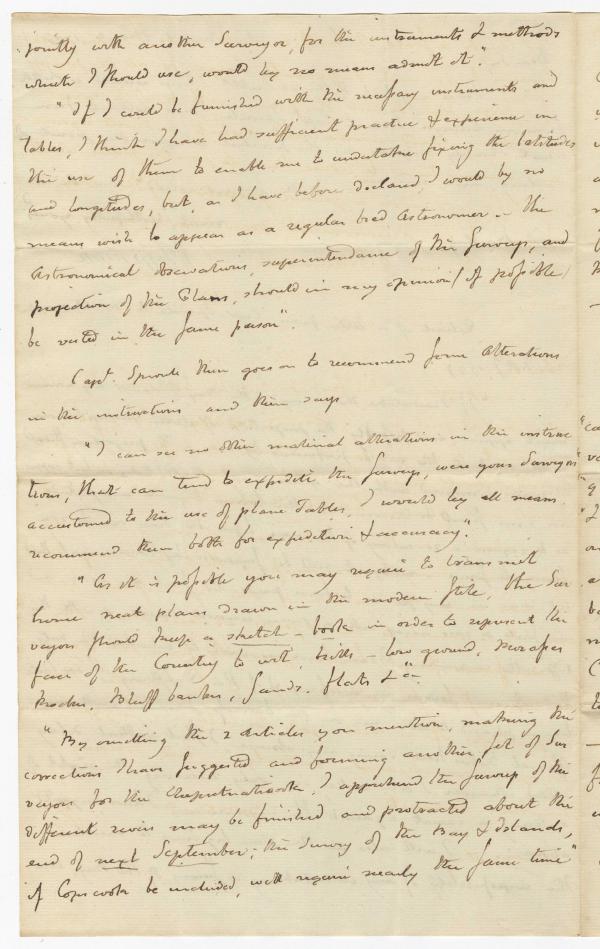 jointly with another Surveyor, for the instruments & methods
which I should use, would by no means admit it".
"If I could be furnished with the necessary instruments and
tables, I think I have had sufficient practice & experience in
the use of them to enable me to undertake fixing the latitudes
and longitudes, but, as I have before declared, I would by no
means wish to appear as a regular bred Astronomer. – The
Astronomical observations, superintendance of the Surveys, and
projection of the Plans, should in my opinion (if possible)
be vested in the same person".
Capt. Sproule then goes on to recommend some Alterations
in the instructions and then says
"I can see no other material alterations in the instruc
tions, that can tend to expedite the Surveys, were your Surveyors
accustomed to the use of plane Tables, I would by all means
recommend them both for expedition & accuracy".
"As it is possible you may require to transmit
home neat plans drawn in the modern stile, the Sur
veyors should keep a sketch – book in order to represent the
face of the Country to wit, hills – low ground, Morasses
Rocks, Bluff banks, Sands, flats &ca
"By omitting the 2 articles you mention, making the
corrections I have suggested and forming another set of Sur
veyors for the, I apprehend the Survey of the
different rivers may be finished and protracted about the
end of next September; the Survey of the Bay & Islands,
if be included, will require nearly the same time"